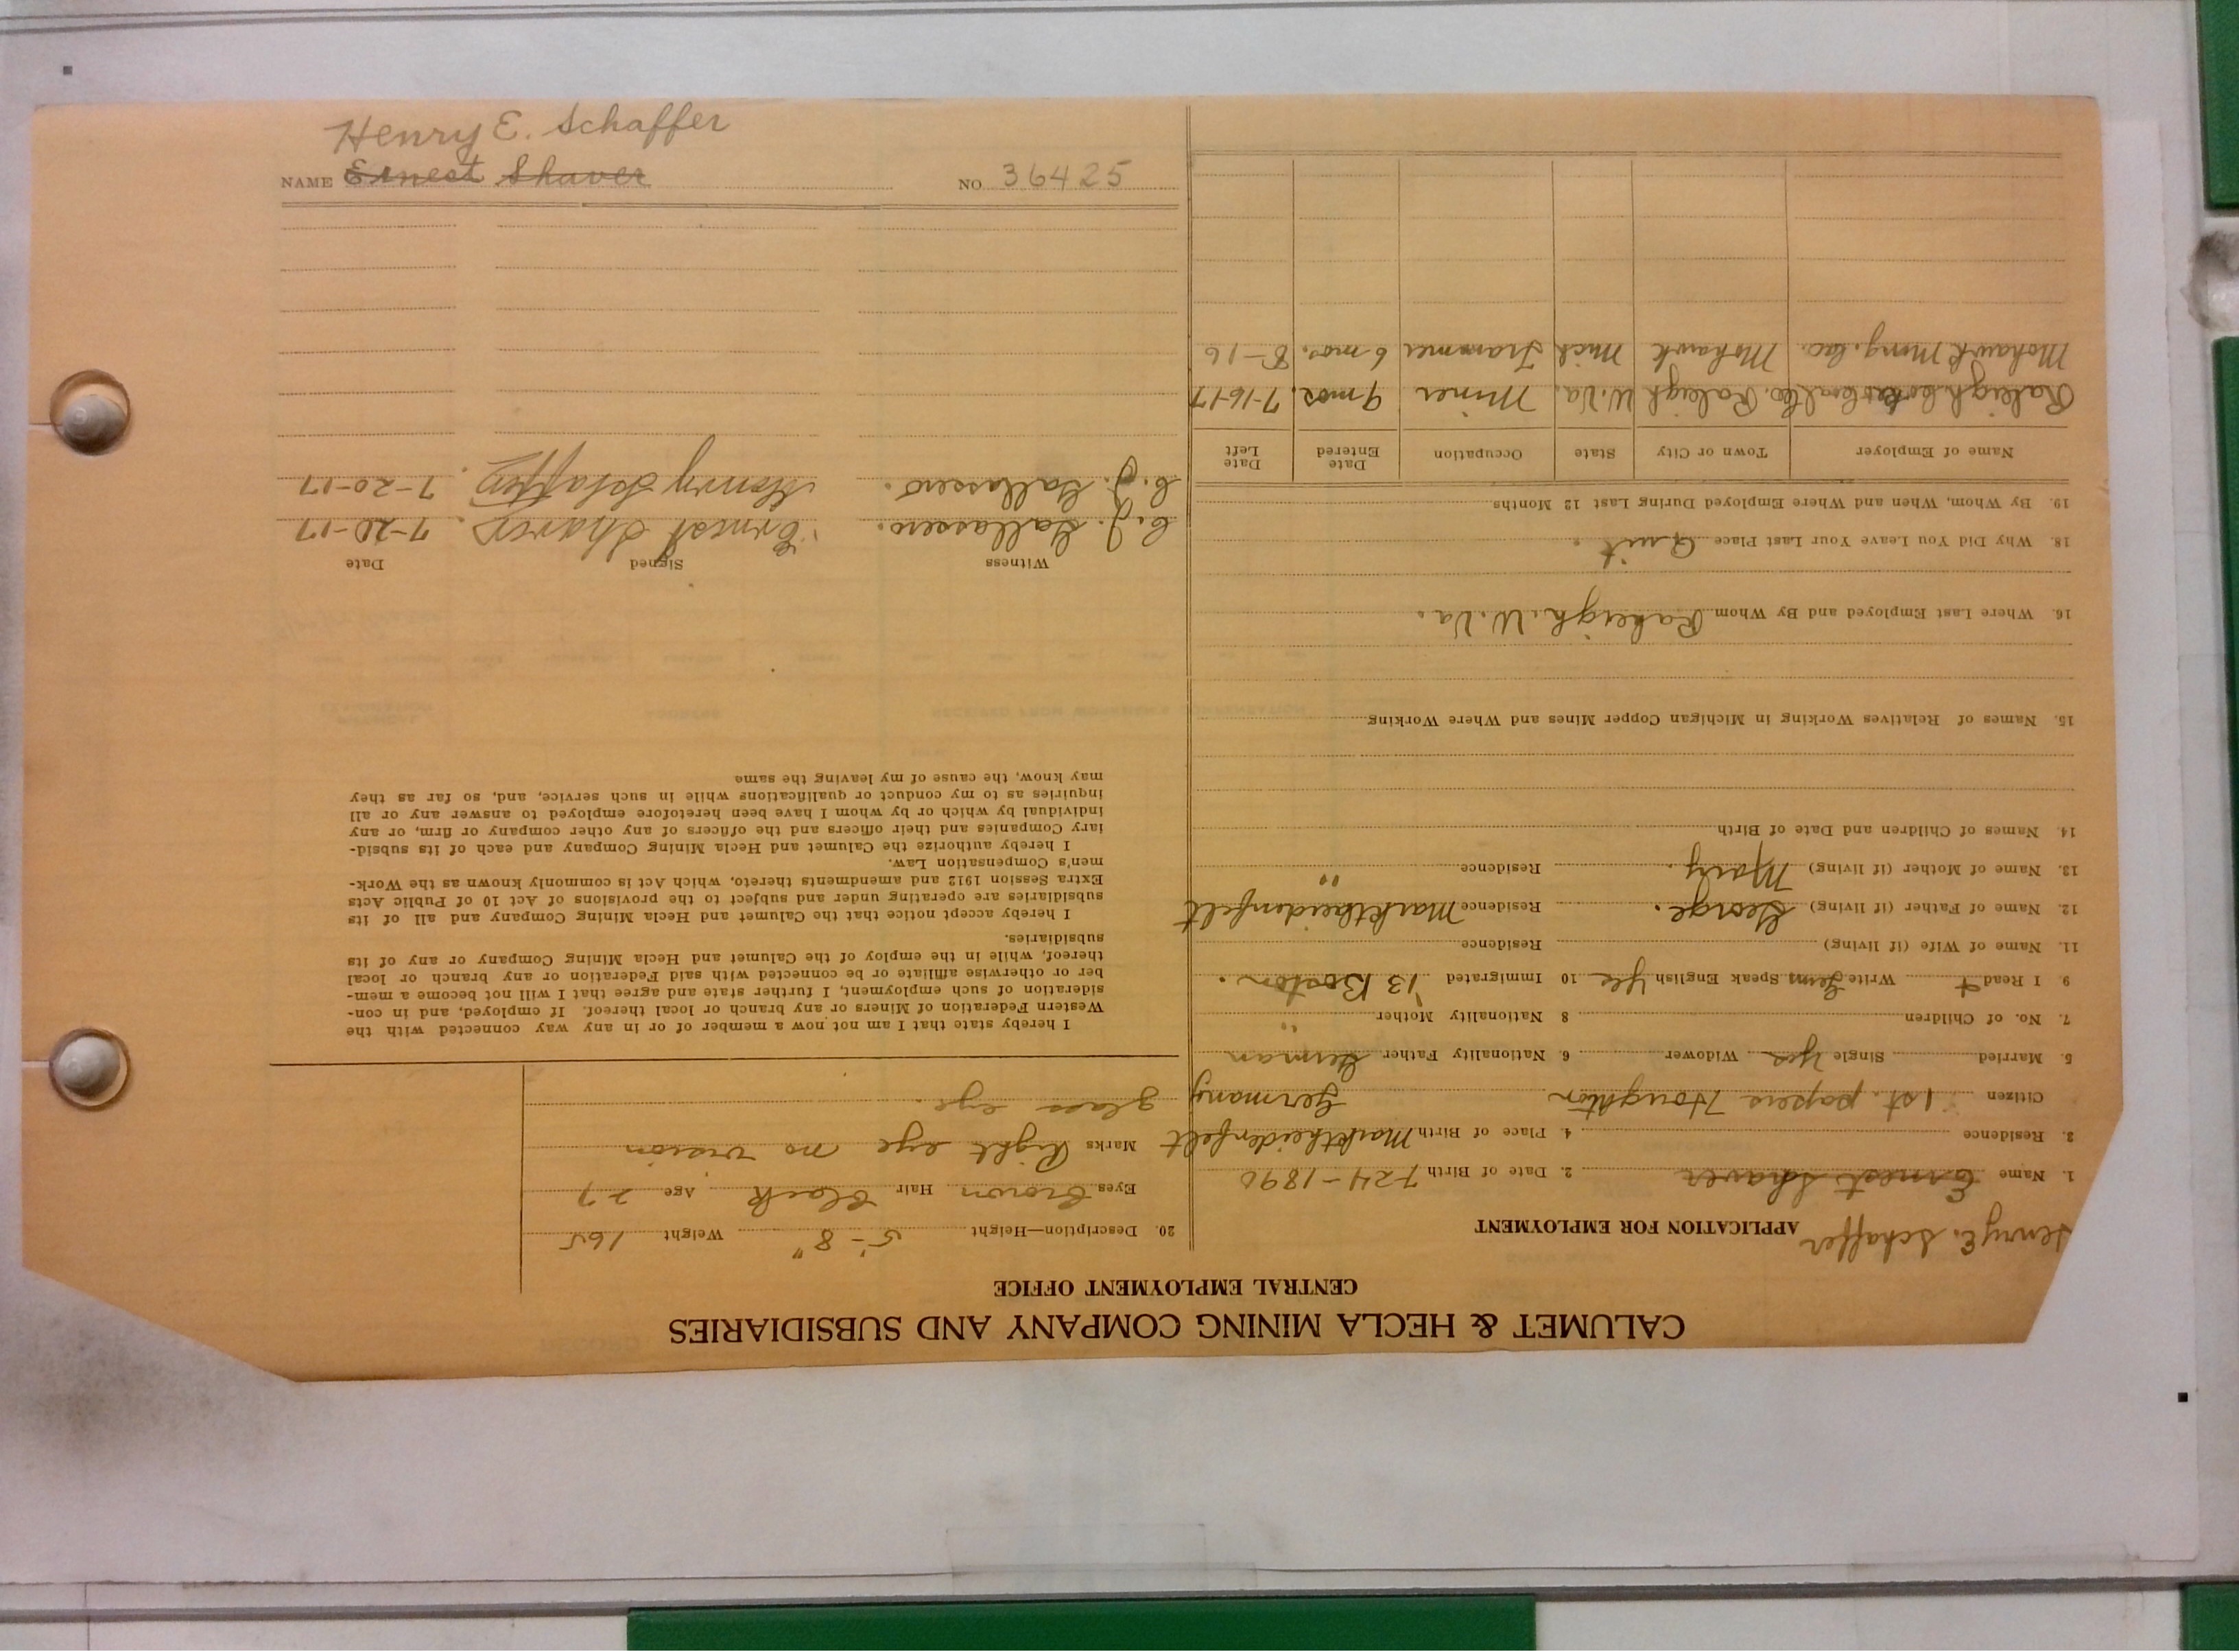 CALUMET & HECLA MINING COMPANY AND SUBSIDIARIES
CENTRAL EMPLOYMENT OFFICE
Henry E. Schaffer
APPLICATION FOR EMPLOYMENT
1. Name Ernest Shaver 2. Date of Birth 7-24-1890
3. Residence 4. Place of Birth Marktheidenfelt
Citizen 1st. papers Houghton Germany
5. Married Single Yes Widower 6. Nationality Father German
7. No. of Children 8 Nationality Mother "
9 I Read + Write Germ Speak English Yes 10 Immigrated '13 Boston.
11. Name of Wife (if living) Residence
12. Name of Father (if living) George. Residence Marktheidenfelt
13. Name of Mother (if living) Mary. Residence "
14. Names of Children and Date of Birth
15. Names of Relatives Working in Michigan Copper Mines and Where Working
16. Where Last Employed and By Whom Raleigh. W. Va.
18. Why Did You Leave Your Last Place Quit.
19. By Whom, When and Where Employed During Last 12 Months.
Name of Employer Town or City State Occupation Date Entered Date Left
Raleigh Coal Co. Raleigh W. Va. Miner 9 mos. 7-16-17
Mohawk Mong. Co. Mohawk Mich Trammer 6 mos. 8-16
20. Description—Height 5'-8" Weight 165
Eyes Brown Hair Black Age 27
Marks Right eye no vision
glass eye.
I hereby state that I am not now a member of or in any way connected with the
Western Federation of Miners or any branch or local thereof. If employed, and in con-
sideration of such employment, I further state and agree that I will not become a mem-
ber or otherwise affiliate or be connected with said Federation or any branch or local
thereof, while in the employ of the Calumet and Hecla Mining Company or any of its
subsidiaries.
I hereby accept notice that the Calumet and Hecla Mining Company and all of its
subsidiaries are operating under and subject to the provisions of Act 10 of Public Acts
Extra Session 1912 and amendments thereto, which Act is commonly known as the Work-
men's Compensation Law.
I hereby authorize the Calumet and Hecla Mining Company and each of its subsid-
iary Companies and their officers and the officers of any other company or firm, or any
individual by which or by whom I have been heretofore employed to answer any or all
inquiries as to my conduct or qualifications while in such service, and, so far as they
may know, the cause of my leaving the same
Witness Signed Date
C. J. Gallassero. Ernest Shaver. 7-20-17
C. J. Gallassero. Henry Schaffer. 7-20-17
Henry E. Schaffer
NAME Ernest Shaver NO. 36425